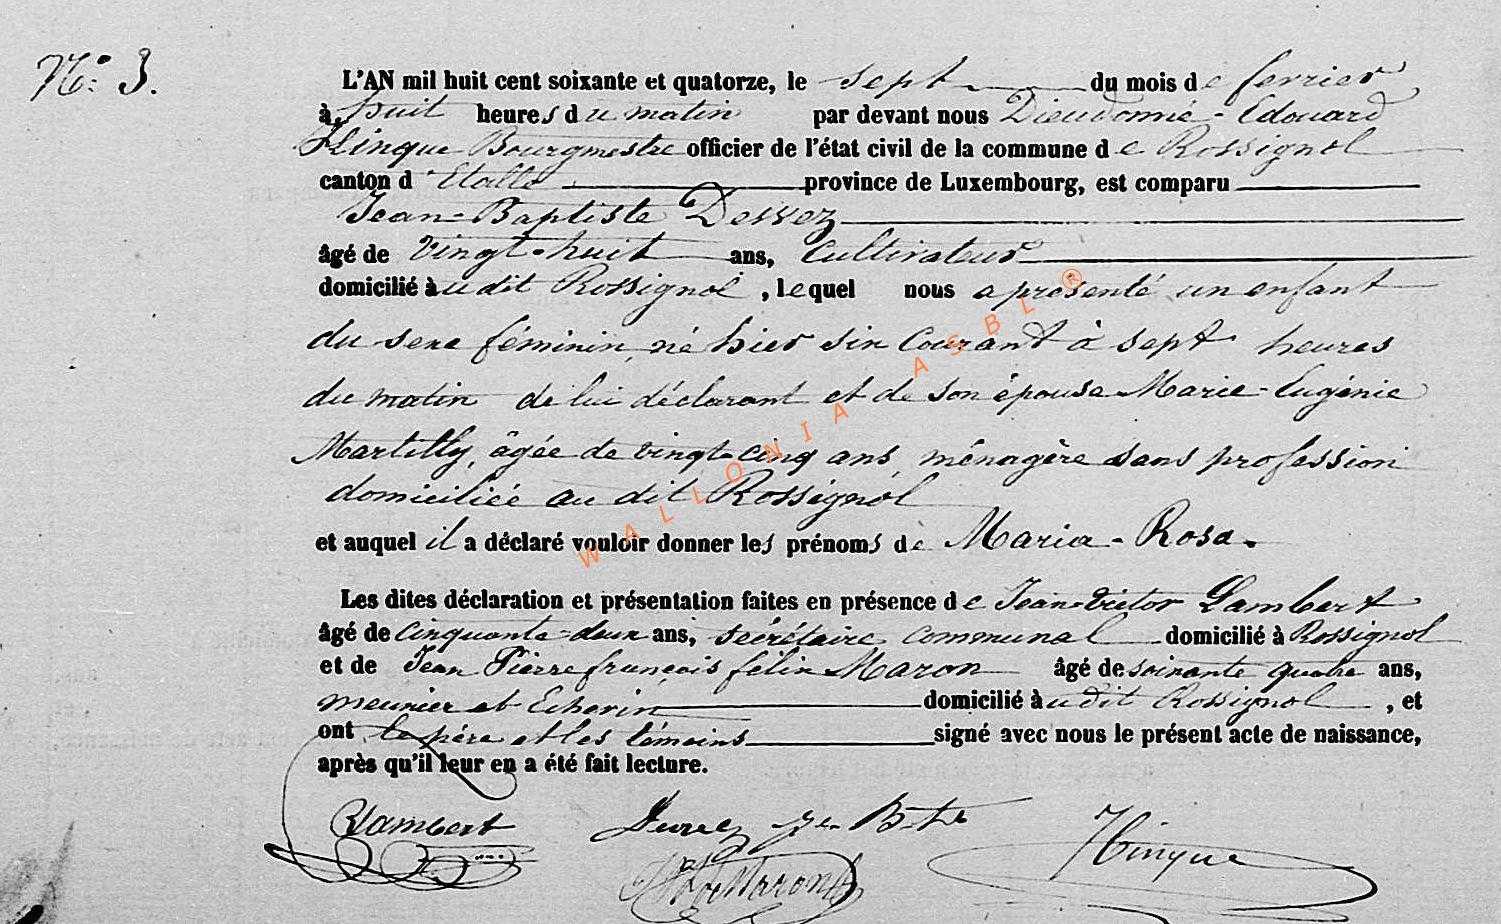 N° 3.
L'AN mil huit cent soixante et quatorze, le sept du mois de fevrier
à huit heures du matin par devant nous Dieudonné-Edouard
Hinque Bourgmestre officier de l'état civil de la commune de Rossignol
canton d'Etalle province de Luxembourg, est comparu
Jean-Baptiste Dessez
âgé de vingt-huit ans, cultivateur
domicilié audit Rossignol, lequel nous a présenté un enfant
du sexe féminin, né hier six courant à sept heures
du matin de lui déclarant et de son épouse Marie-Eugénie
Martilly, âgée de vingt-cinq ans, ménagère sans profession
domiciliée au dit Rossignol
et auquel il a déclaré vouloir donner les prénoms de Maria-Rosa.
Les dites déclaration et présentation faites en présence de Jean-Victor Lambert
âgé de cinquante-deux ans, secrétaire communal domicilié à Rossignol
et de Jean Pierre françois félix Maron âgé de soixante quatre ans,
meunier et Echevin domicilié audit Rossignol, et
ont le père et les témoins signé avec nous le présent acte de naissance,
après qu'il leur en a été fait lecture.
Lambert Bte Hinque
Maron
WALLONIA ASBL ®